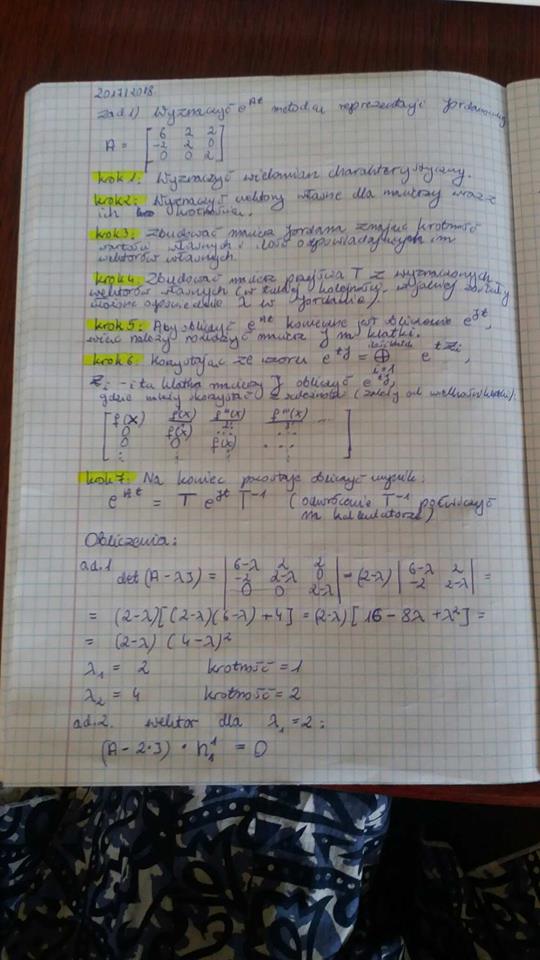 2017/2018
zad.1) Wyznaczyć e^At metodą reprezentacji Jordanowej
A = [ 6 2 2
-2 2 0
0 0 2 ]
krok 1: Wyznaczyć wielomian charakterystyczny.
krok 2: Wyznaczyć wektory własne dla macierzy wraz z
ich krotności.
krok 3: Zbudować macierz Jordana znając krotność
wartości własnych i ilość odpowiadających im
wektorów własnych.
krok 4: Zbudować macierz przejścia T z wyznaczonych
wektorów własnych (w takiej kolejności, w jakiej zostały
odpowiednie λ w Jordanie).
krok 5: Aby obliczyć e^At konieczne jest obliczenie e^Jt,
więc należy rozłożyć macierz J na klatki.
krok 6: Korzystając ze wzoru e^tJ = ⊕ i=1 e^tZi,
Zi - i-ta klatka macierzy J obliczyć e^tJ,
gdzie należy skorzystać z zależności (zależy od wielkości klatki):
[ f(x) f'(x) f''(x) f'''(x)
0 f(x)
0 0 f(x) ...
⋮ ⋮ ⋮ ]
krok 7: Na koniec pozostaje obliczyć wynik:
e^At = T e^Jt T^-1 (odwrócenie T^-1 poćwiczyć
na kalkulatorze)
Obliczenia:
ad.1
det(A-λJ) = | 6-λ 2 2
-2 2-λ 0
0 0 2-λ | = (2-λ) | 6-λ 2
-2 2-λ | =
= (2-λ)[(2-λ)(6-λ)+4] = (2-λ)[16-8λ+λ²] =
= (2-λ)(4-λ)²
λ1 = 2 krotność = 1
λ2 = 4 krotność = 2
ad.2. wektor dla λ1 = 2:
(A-2·J) · h^1_1 = 0